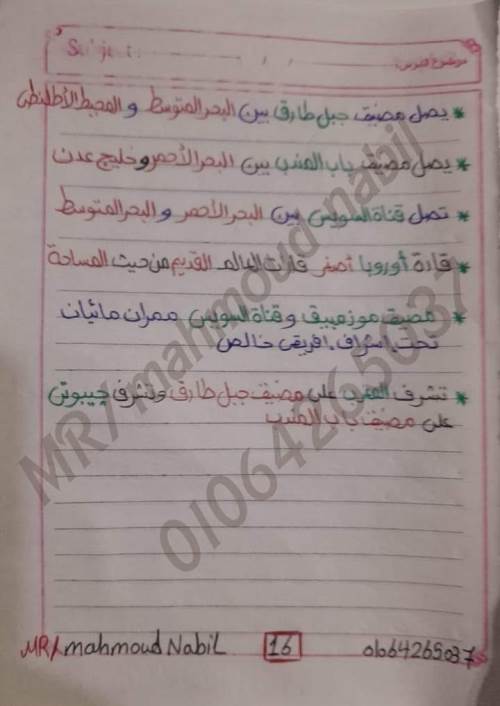 Subject: / /
موضوع الدرس:
* يصل مضيق جبل طارق بين البحر المتوسط و المحيط الأطلنطى
* يصل مضيق باب المندب بين البحر الأحمر و خليج عدن
* تصل قناة السويس بين البحر الأحمر و البحر المتوسط
* قارة أوروبا أصغر قارات العالم القديم من حيث المساحة
* مضيق موزمبيق و قناة السويس ممران مائيان
تحت إشراف افريقى خالص
* تشرف المغرب على مضيق جبل طارق و تشرف جيبوتى
على مضيق باب المندب
MR/mahmoud nabil
01064265037
MR/mahmoud Nabil 16 01064265037